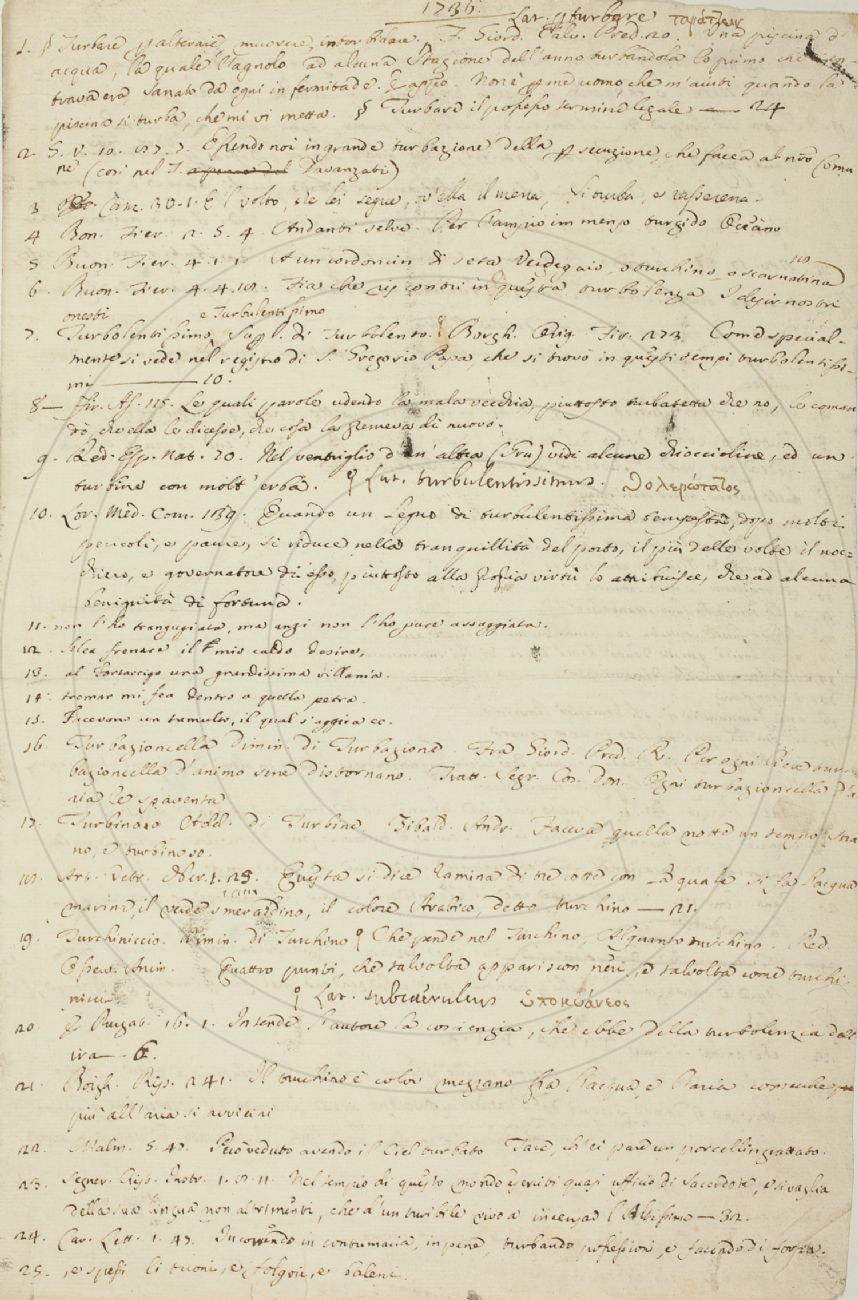 1736.
Lat. perturbare ταράττειν
1. § Turbare per alterare, muovere, intorbidare. F. Giord. Salv. Pred. 20. Una piscina d'
acqua, la quale l'agnolo ad alcuna stagione dell'anno turbandola lo primo che
trava era sanato da ogni infermitade. E appr. Non è per me uomo, che m'aiuti quando la
piscina si turba, che mi vi metta. § Turbare il possesso termine legale — 24
2. S. V. 10. Essendo noi in grande turbazione della persecuzione, che facea al nro Comu
ne (così nel T. Davanzati)
3 Canz. 30. 1. E 'l volto, che lei segue, ov'ella il mena, Si turba, e rasserena.
4 Bon. Fier. 2. 5. 4. Andanti selve Per l'ampio immenso turgido Oceano
5 Buon. Fier. 4. 1. 1. A un cordoncin di seta Verdegaio, o turchino o scarnatina
6. Buon. Fier. 4. 4. 18. Fia che riscontri in questa turbolenza I desir nostri
onesti e Turbulentissimo
7. Turbolentissimo, Suppl. di Turbolento. § Borgh. Orig. Fir. 273. Come special-
mente si vede nel registro di S. Gregorio Papa che si trovò in questi tempi turbolentissi-
mi — 10.
8 — Fir. As. 115. Le quali parole udendo la mala vecchia, piuttosto turbatetta che no, le coman
dò, ch'ella le dicesse, che cosa la premeva di nuovo.
9. Red. Esp. Nat. 20. Nel ventriglio d'un'altra (Gru) vidi alcune chioccioline, ed un
turbine con molt'erba. § Lat. turbulentissimus. θολερώτατος
10. Lor. Med. Com. 139. Quando un legno di turbulentissima tempesta, dopo molti
pericoli, e paure, si riduce nella tranquillità del porto, il più delle volte il noc=
chiero, e governatore di esso, piuttosto alla propria virtù lo attribuisce, che ad alcuna
benignità di fortuna.
11. non l'ho trangugiata, ma anzi non l'ho pure assaggiata.
12. Solea frenare il mio caldo desire,
13. al Fortarrigo una grandissima villania.
14. tremar mi fea dentro a quella petra.
15. Facevano un tumulto, il qual s'aggira ec.
16. Turbazioncella Dimin. di Turbazione. Fra Giord. Pred. R. Per ogni lieve tur-
bazioncella d'animo sene distornano. Tratt. Segr. Cos. Don. Ogni turbazioncella d'a
ria le spaventa
17. Turbinoso Add. di Turbine. Zibald. Andr. Faceva quella notte un tempo stra
no, e turbinoso.
18. Art. Vetr. Ner. 1. 25. Questa si dice ramina di tre cotte con la quale si fa l'acqua
marina, il verde smeraldino, il colore Arabico, detto turchino — 21.
19. Turchiniccio. Dimin. di Turchino § Che pende nel Turchino, Alquanto turchino. Red.
Osserv. Anim. Quattro punti, che talvolta appariscon neri, e talvolta come turchi-
nicci. § Lat. subcaeruleus ὑποκυάνεος
20. § Purgat. 16. 1. Intende l'autore la coscienzia, che ebbe della turbolenzia dell'
ira — 6.
21. Borgh. Rip. 241. Il turchino è color mezzano fra l'acqua, e l'aria comecchè
più all'aria si avvicini
22. Malm. 5. 47. Però veduto avendo il Ciel turbato Tace, ch'ei pare un porcellin grattato.
23. Segner. Cris. Instr. 1. 2. 11. Nel tempio di questo mondo eserciti quasi uffizio di Sacerdote, e si vaglia
della sua lingua non altrimenti, che d'un turibile vivo a incensar l'Altissimo — 32.
24. Car. Lett. 1. 47. Incorrendo in contumacia, in pene, turbando possessioni, e facendo di forza.
25. , e spessi li tuoni, e folgori, e baleni.